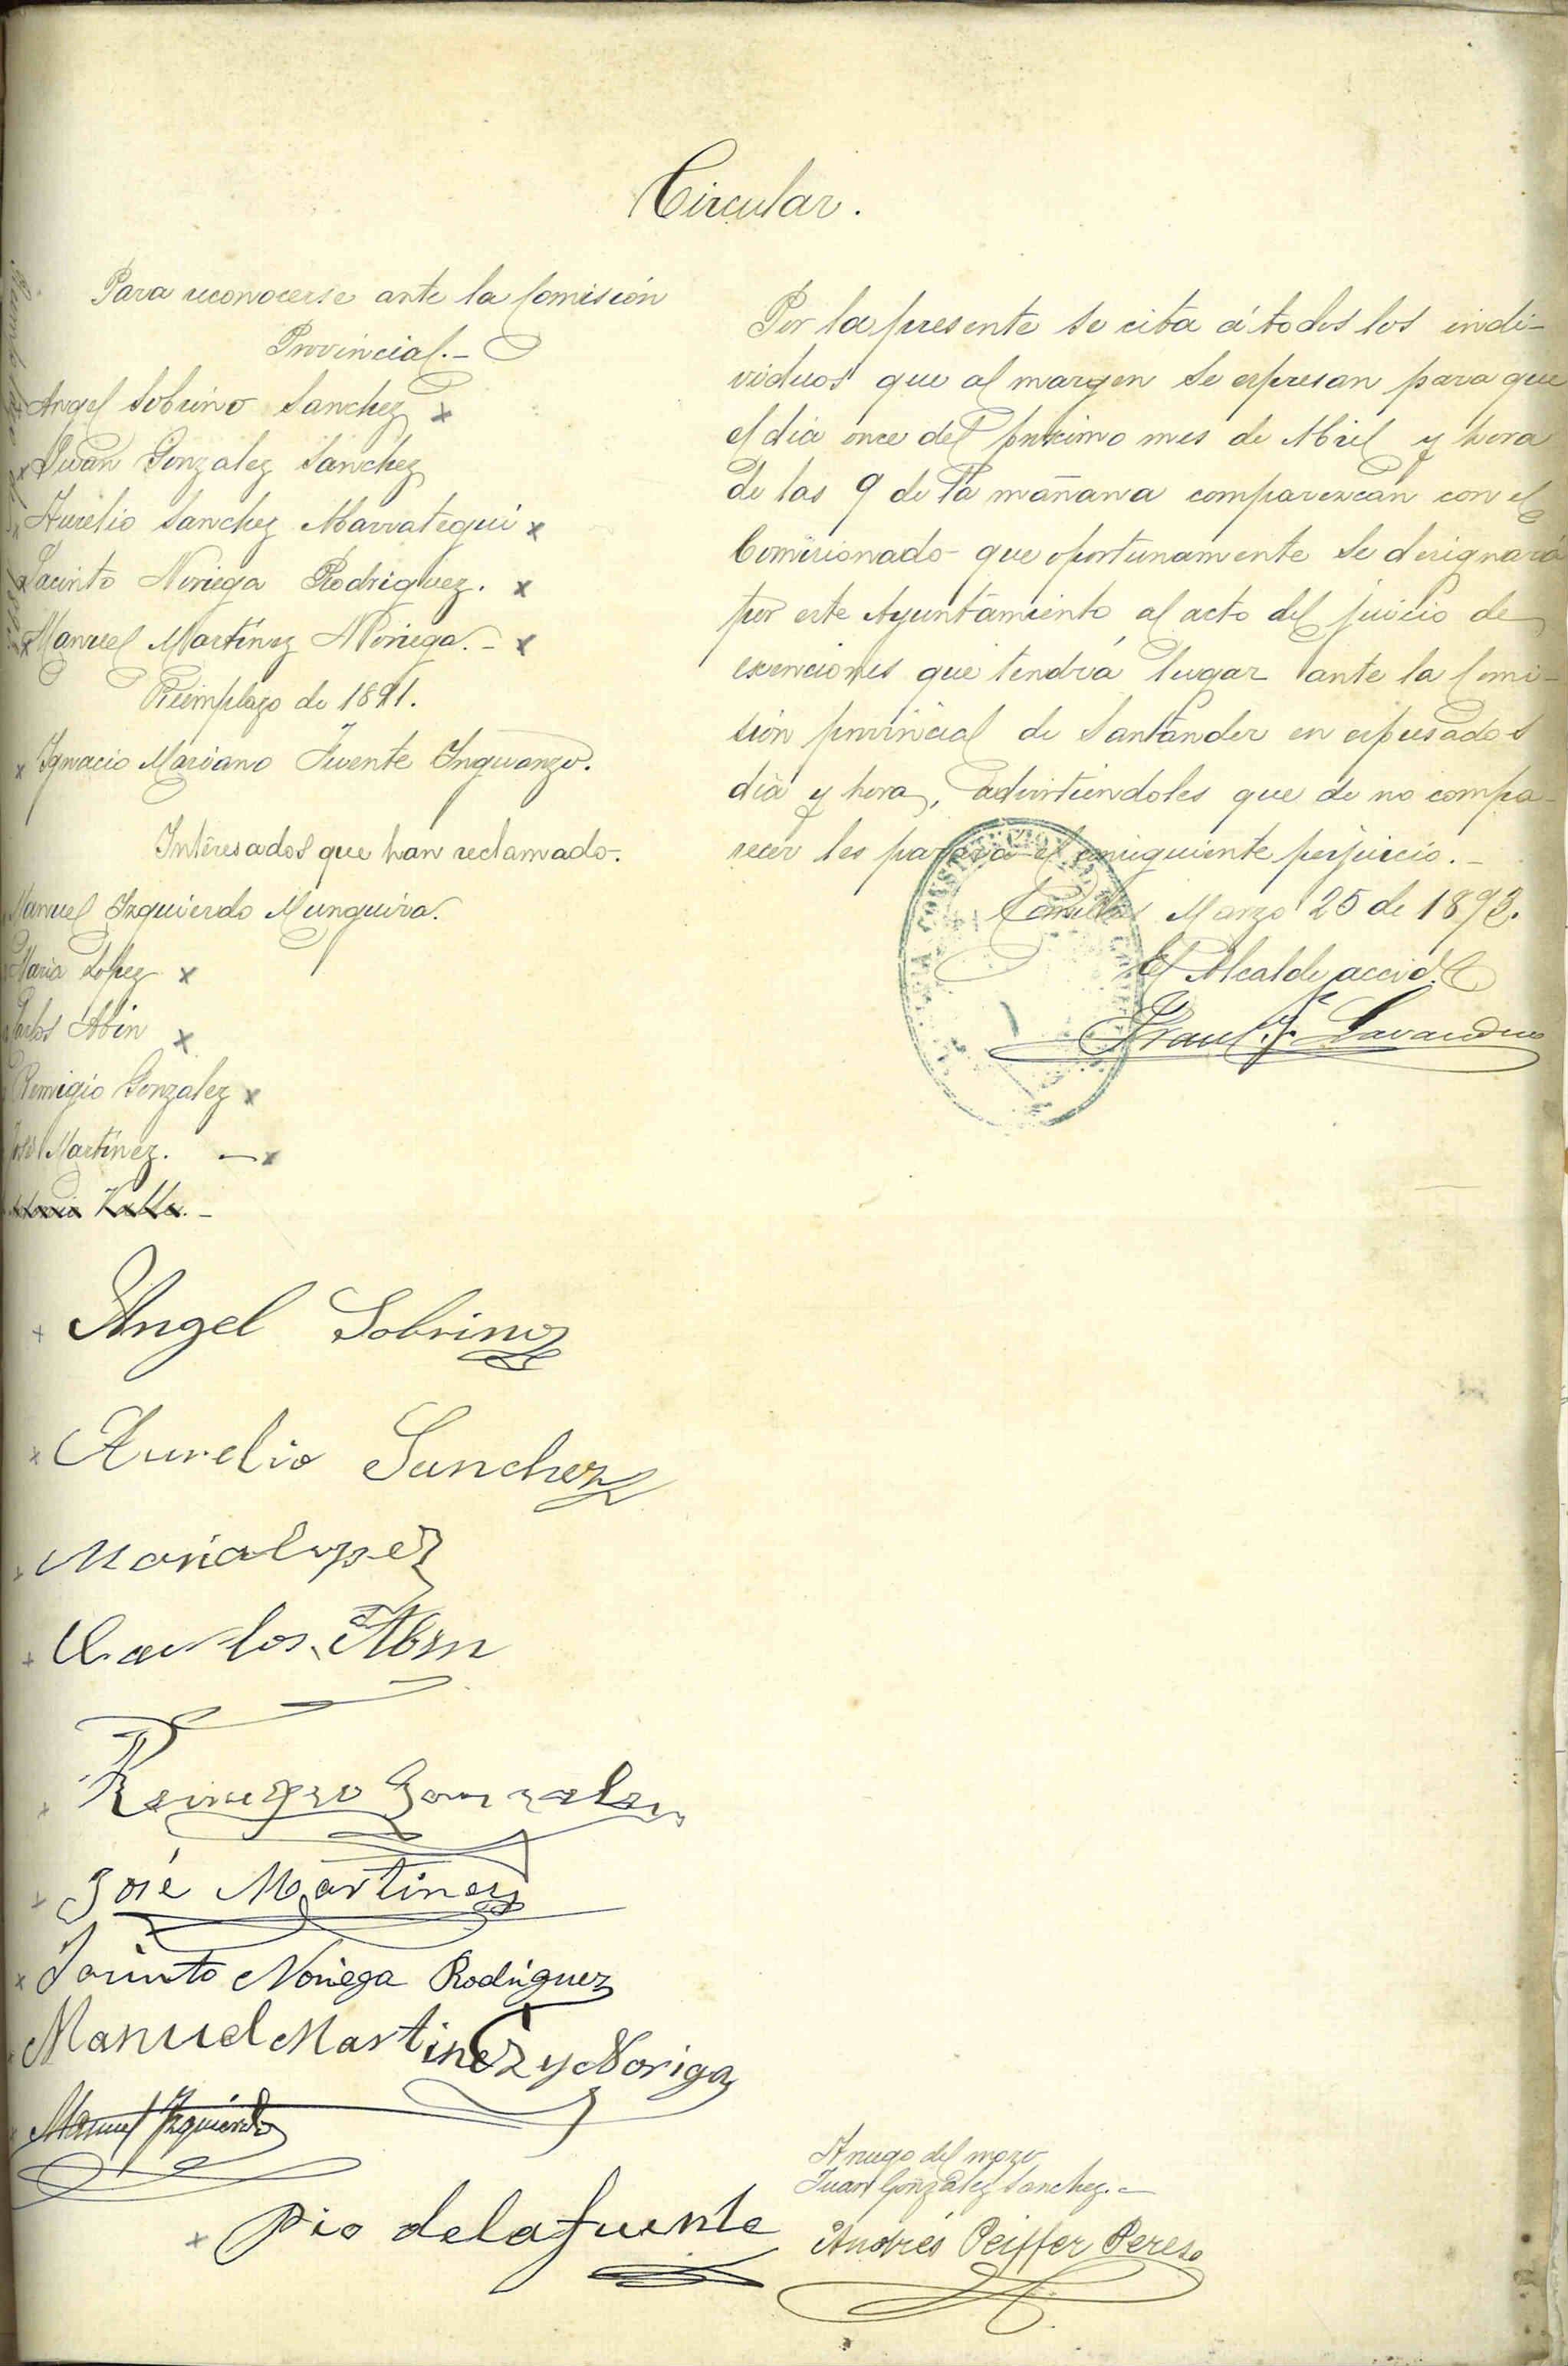 Circular.
Para reconocerse ante la Comisión
Provincial.-
Angel Sobrino Sanchez x
x Juan Gonzalez Sanchez
x Aurelio Sanchez Marrategui x
x Jacinto Noriega Rodriguez. x
x Manuel Martínez Noriega.- x
Reemplazo de 1891.
x Ignacio Mariano Fuente Inguanzo.
Interesados que han reclamado.
Manuel Izquierdo Munguira.
Maria Lopez x
Carlos Abin x
Remigio Gonzalez x
José Martínez. — x
Por la presente se cita á todos los indi-
viduos que al margen se espresan para que
el día once del próximo mes de Abril y hora
de las 9 de la mañana comparezcan con el
Comisionado que oportunamente se designará
por este Ayuntamiento, al acto del juicio de
exenciones que tendrá lugar ante la Comi-
sión provincial de Santander en espresados
día y hora, advirtiéndoles que de no compa-
recer les parará el consiguiente perjuicio.-
Comillas Marzo 25 de 1893.
El Alcalde accid.
x Angel Sobrino
x Aurelio Sanchez
x Maria lopez
x Carlos Abin
x Remigio Gonzalez
x José Martinez
x Jacinto Noriega Rodriguez
x Manuel Martinez y Noriga
x Manuel Izquierdo
x Pio de la fuente
A ruego del mozo
Juan Gonzalez Sanchez.-
Andrés Peiffer Perez